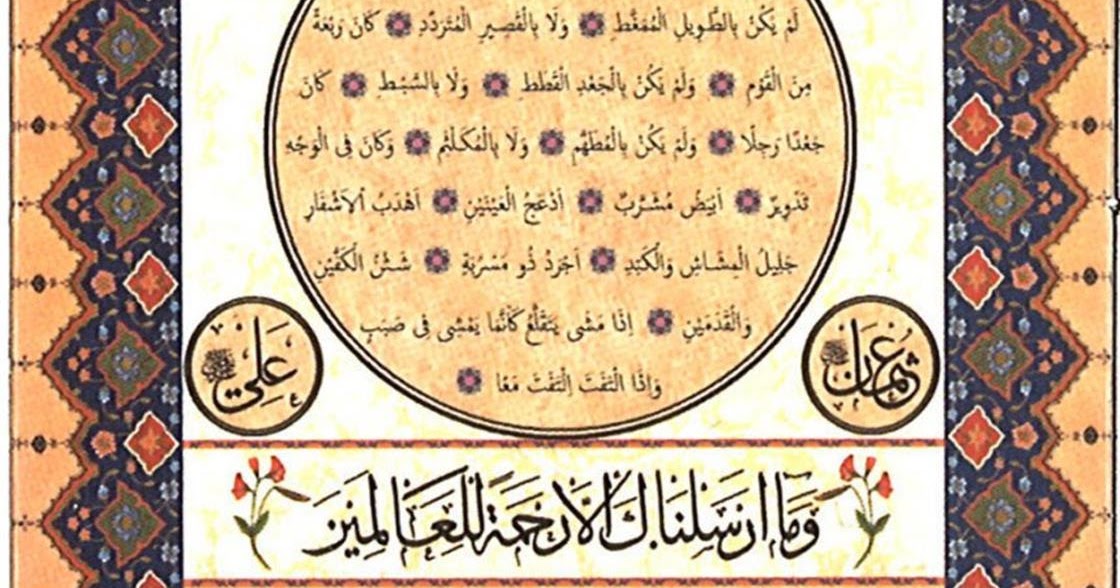 لَمْ يَكُنْ بِالطَّوِيلِ الْمُمَغَّطِ وَلَا بِالْقَصِيرِ الْمُتَرَدِّدِ كَانَ رَبْعَةً
مِنَ الْقَوْمِ وَلَمْ يَكُنْ بِالْجَعْدِ الْقَطَطِ وَلَا بِالسَّبْطِ كَانَ
جَعْدًا رَجِلًا وَلَمْ يَكُنْ بِالْمُطَهَّمِ وَلَا بِالْمُكَلْثَمِ وَكَانَ فِى الْوَجْهِ
تَدْوِيرٌ اَبْيَضُ مُشْرَبٌ اَدْعَجُ الْعَيْنَيْنِ اَهْدَبُ الْاَشْفَارِ
جَلِيلُ الْمِشَاشِ وَالْكَتِدِ اَجْرَدُ ذُو مَسْرُبَةٍ شَثْنُ الْكَفَّيْنِ
وَالْقَدَمَيْنِ اِذَا مَشٰى يَتَقَلَّعُ كَاَنَّمَا يَمْشِى فِى صَبَبٍ
وَاِذَا الْتَفَتَ اِلْتَفَتَ مَعًا
عُثْمَان
عَلِي
وَمَا اَرْسَلْنَاكَ اِلَّا رَحْمَةً لِلْعَالَمِينَ